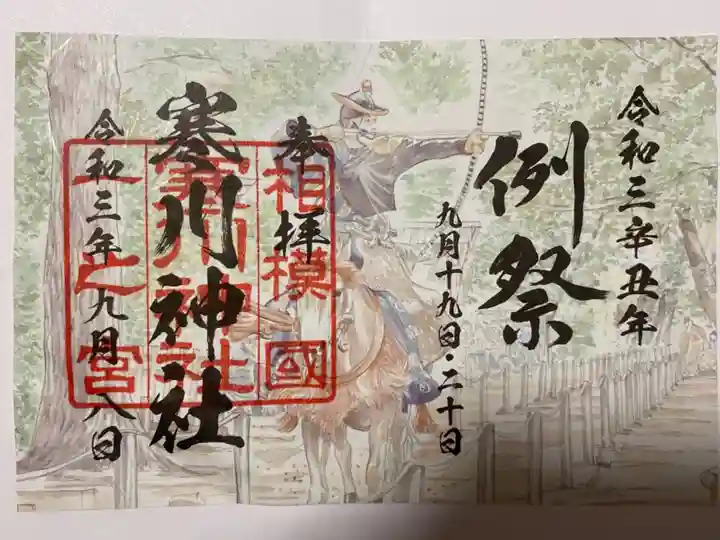 令和三辛丑年
例祭
九月十九日・二十日
奉拝
寒川神社
令和三年九月八日
相模國
寒川神社
一之宮